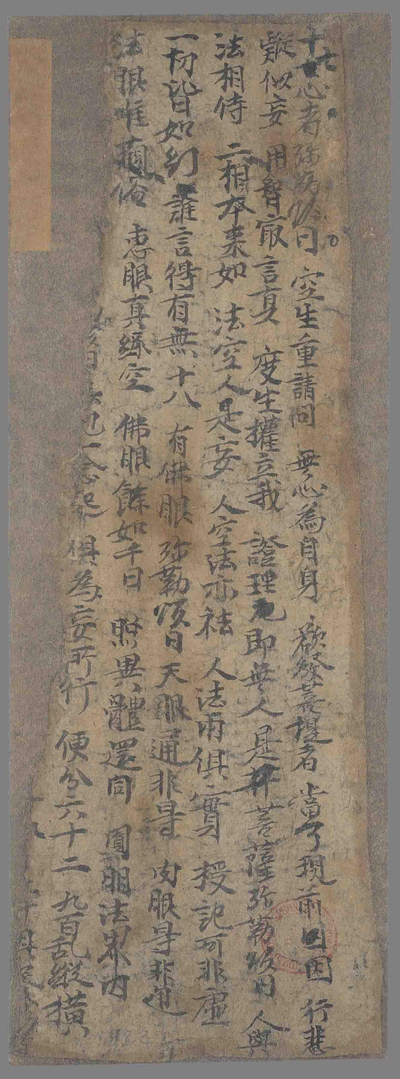 十七心者弥勒頌曰 空生重請問 無心為自身 欲發菩提者 當了現前因 行悲
疑似妄 用智最言真 度生權立我 證理即無人 是菩薩弥勒頌曰 人與
法相待 二相本来如 法空人是妄 人空法亦祛 人法兩俱實 授記可非虛
一切皆如幻 誰言得有無 十八 有佛眼 弥勒頌曰 天眼通非导 肉眼导非通
法眼唯觀俗 惠眼真緣空 佛眼餘如千日 照異體還同 圓明法界內
一念起 俱為妄所行 便分六十二 九百乱縱橫